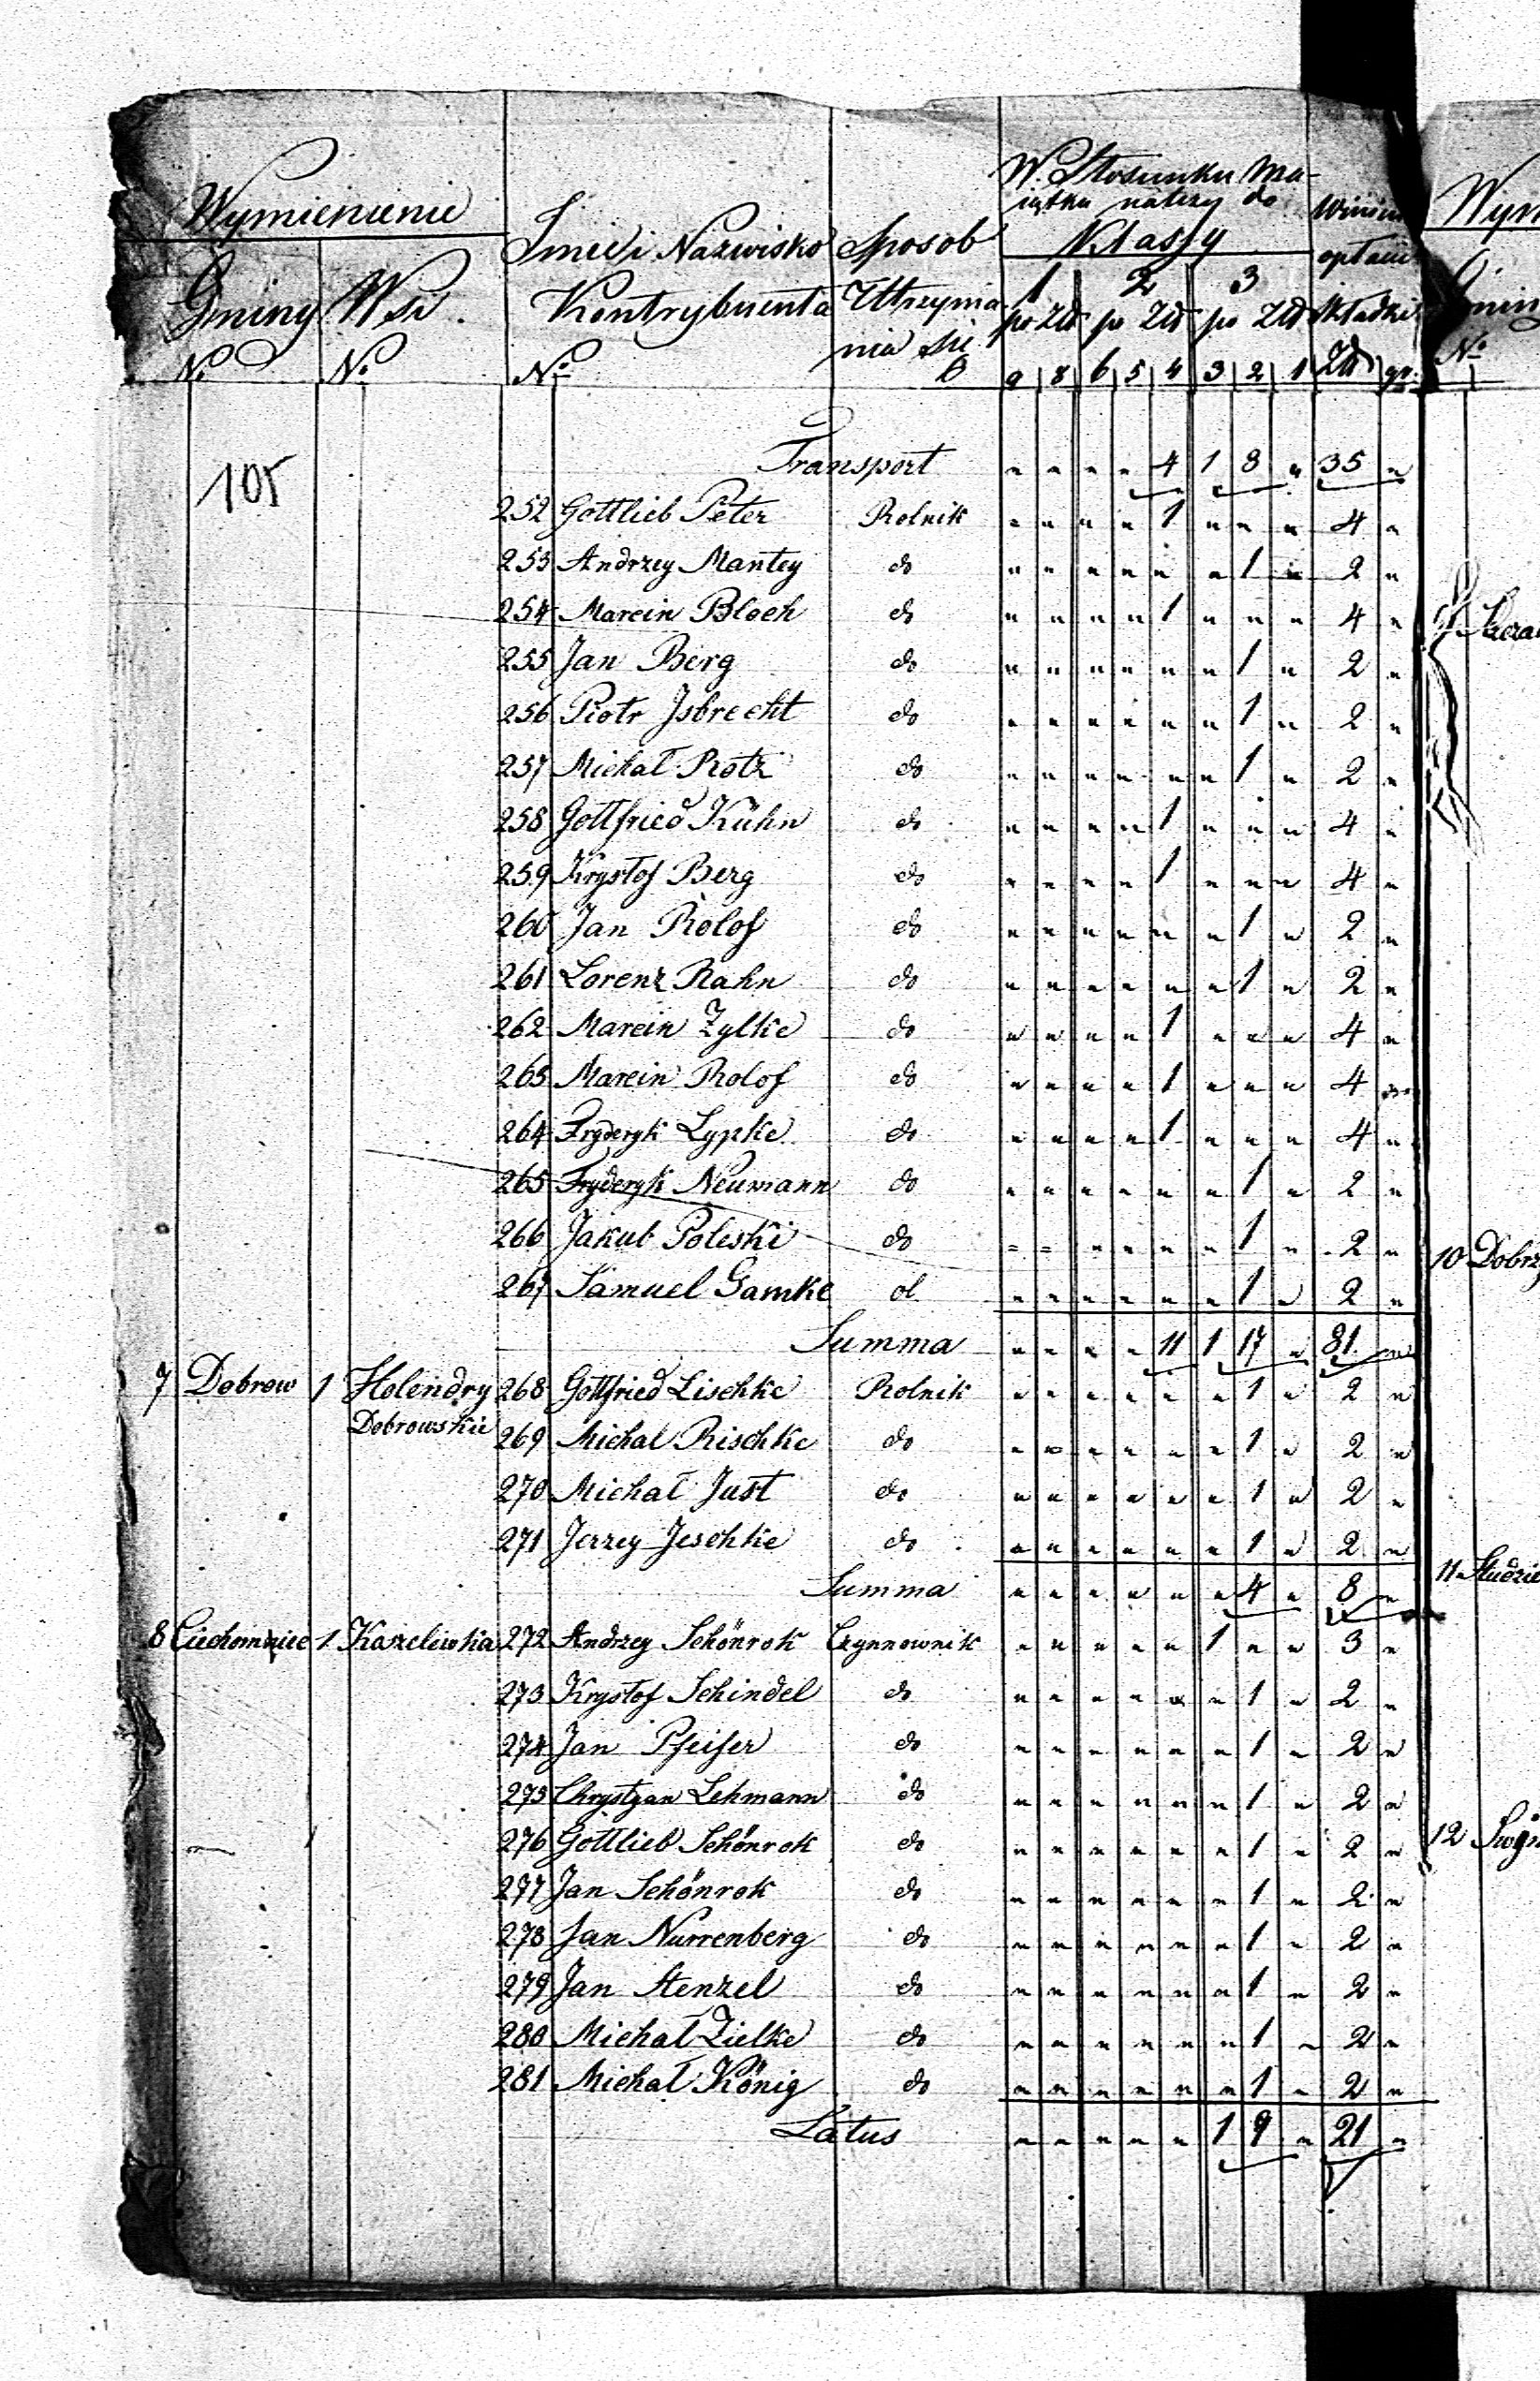 Wymienienie
Gminy Wsi
No No
Imie i Nazwisko
Kontrybuenta
No
Sposob
Utrzyma
nia się
W Stosunku Ma-
iątku należy do
Klassy
1 2 3
po Zł po Zł po Zł
9 8 6 5 4 3 2 1
Winien
opłacić
Składki
Zł gr.
105
Transport " " " " 4 1 8 " 35 "
252 Gottlieb Peter Rolnik " " " " 1 " " " 4 "
253 Andrzey Mantey do " " " " " " 1 " 2 "
254 Marcin Bloch do " " " " 1 " " " 4 "
255 Jan Berg do " " " " " " 1 " 2 "
256 Piotr Jsbrecht do " " " " " " 1 " 2 "
257 Michał Rotz do " " " " " " 1 " 2 "
258 Gottfried Kühn do " " " " 1 " " " 4 "
259 Krystof Berg do " " " " 1 " " " 4 "
260 Jan Rolof do " " " " " " 1 " 2 "
261 Lorenz Rahn do " " " " " " 1 " 2 "
262 Marcin Zylke do " " " " 1 " " " 4 "
263 Marcin Rolof do " " " " 1 " " " 4 "
264 Fryderyk Lypke do " " " " 1 " " " 4 "
265 Fryderyk Neumann do " " " " " " 1 " 2 "
266 Jakub Poleski do " " " " " " 1 " 2 "
267 Samuel Gamke do " " " " " " 1 " 2 "
Summa " " " " 11 1 17 " 81 "
7 Dobrow 1 Holendry 268 Gottfried Lischke Rolnik " " " " " " 1 " 2 "
Dobrowskie
269 Michał Rischke do " " " " " " 1 " 2 "
270 Michał Just do " " " " " " 1 " 2 "
271 Jerzey Jeschke do " " " " " " 1 " 2 "
Summa " " " " " " 4 " 8 "
8 Ciechomnice 1 Kazelewka 272 Andrzey Schönrok Czynnownik " " " " " 1 " " 3 "
273 Krystof Schindel do " " " " " " 1 " 2 "
274 Jan Pfeifer do " " " " " " 1 " 2 "
275 Chrystyan Lehmann do " " " " " " 1 " 2 "
276 Gottlieb Schönrok do " " " " " " 1 " 2 "
277 Jan Schönrok do " " " " " " 1 " 2 "
278 Jan Nurrenberg do " " " " " " 1 " 2 "
279 Jan Stenzel do " " " " " " 1 " 2 "
280 Michał Zielke do " " " " " " 1 " 2 "
281 Michał König do " " " " " " 1 " 2 "
Latus " " " " " 1 9 " 21 "
Wym
No
10 Dobrz
11 Studzie
12